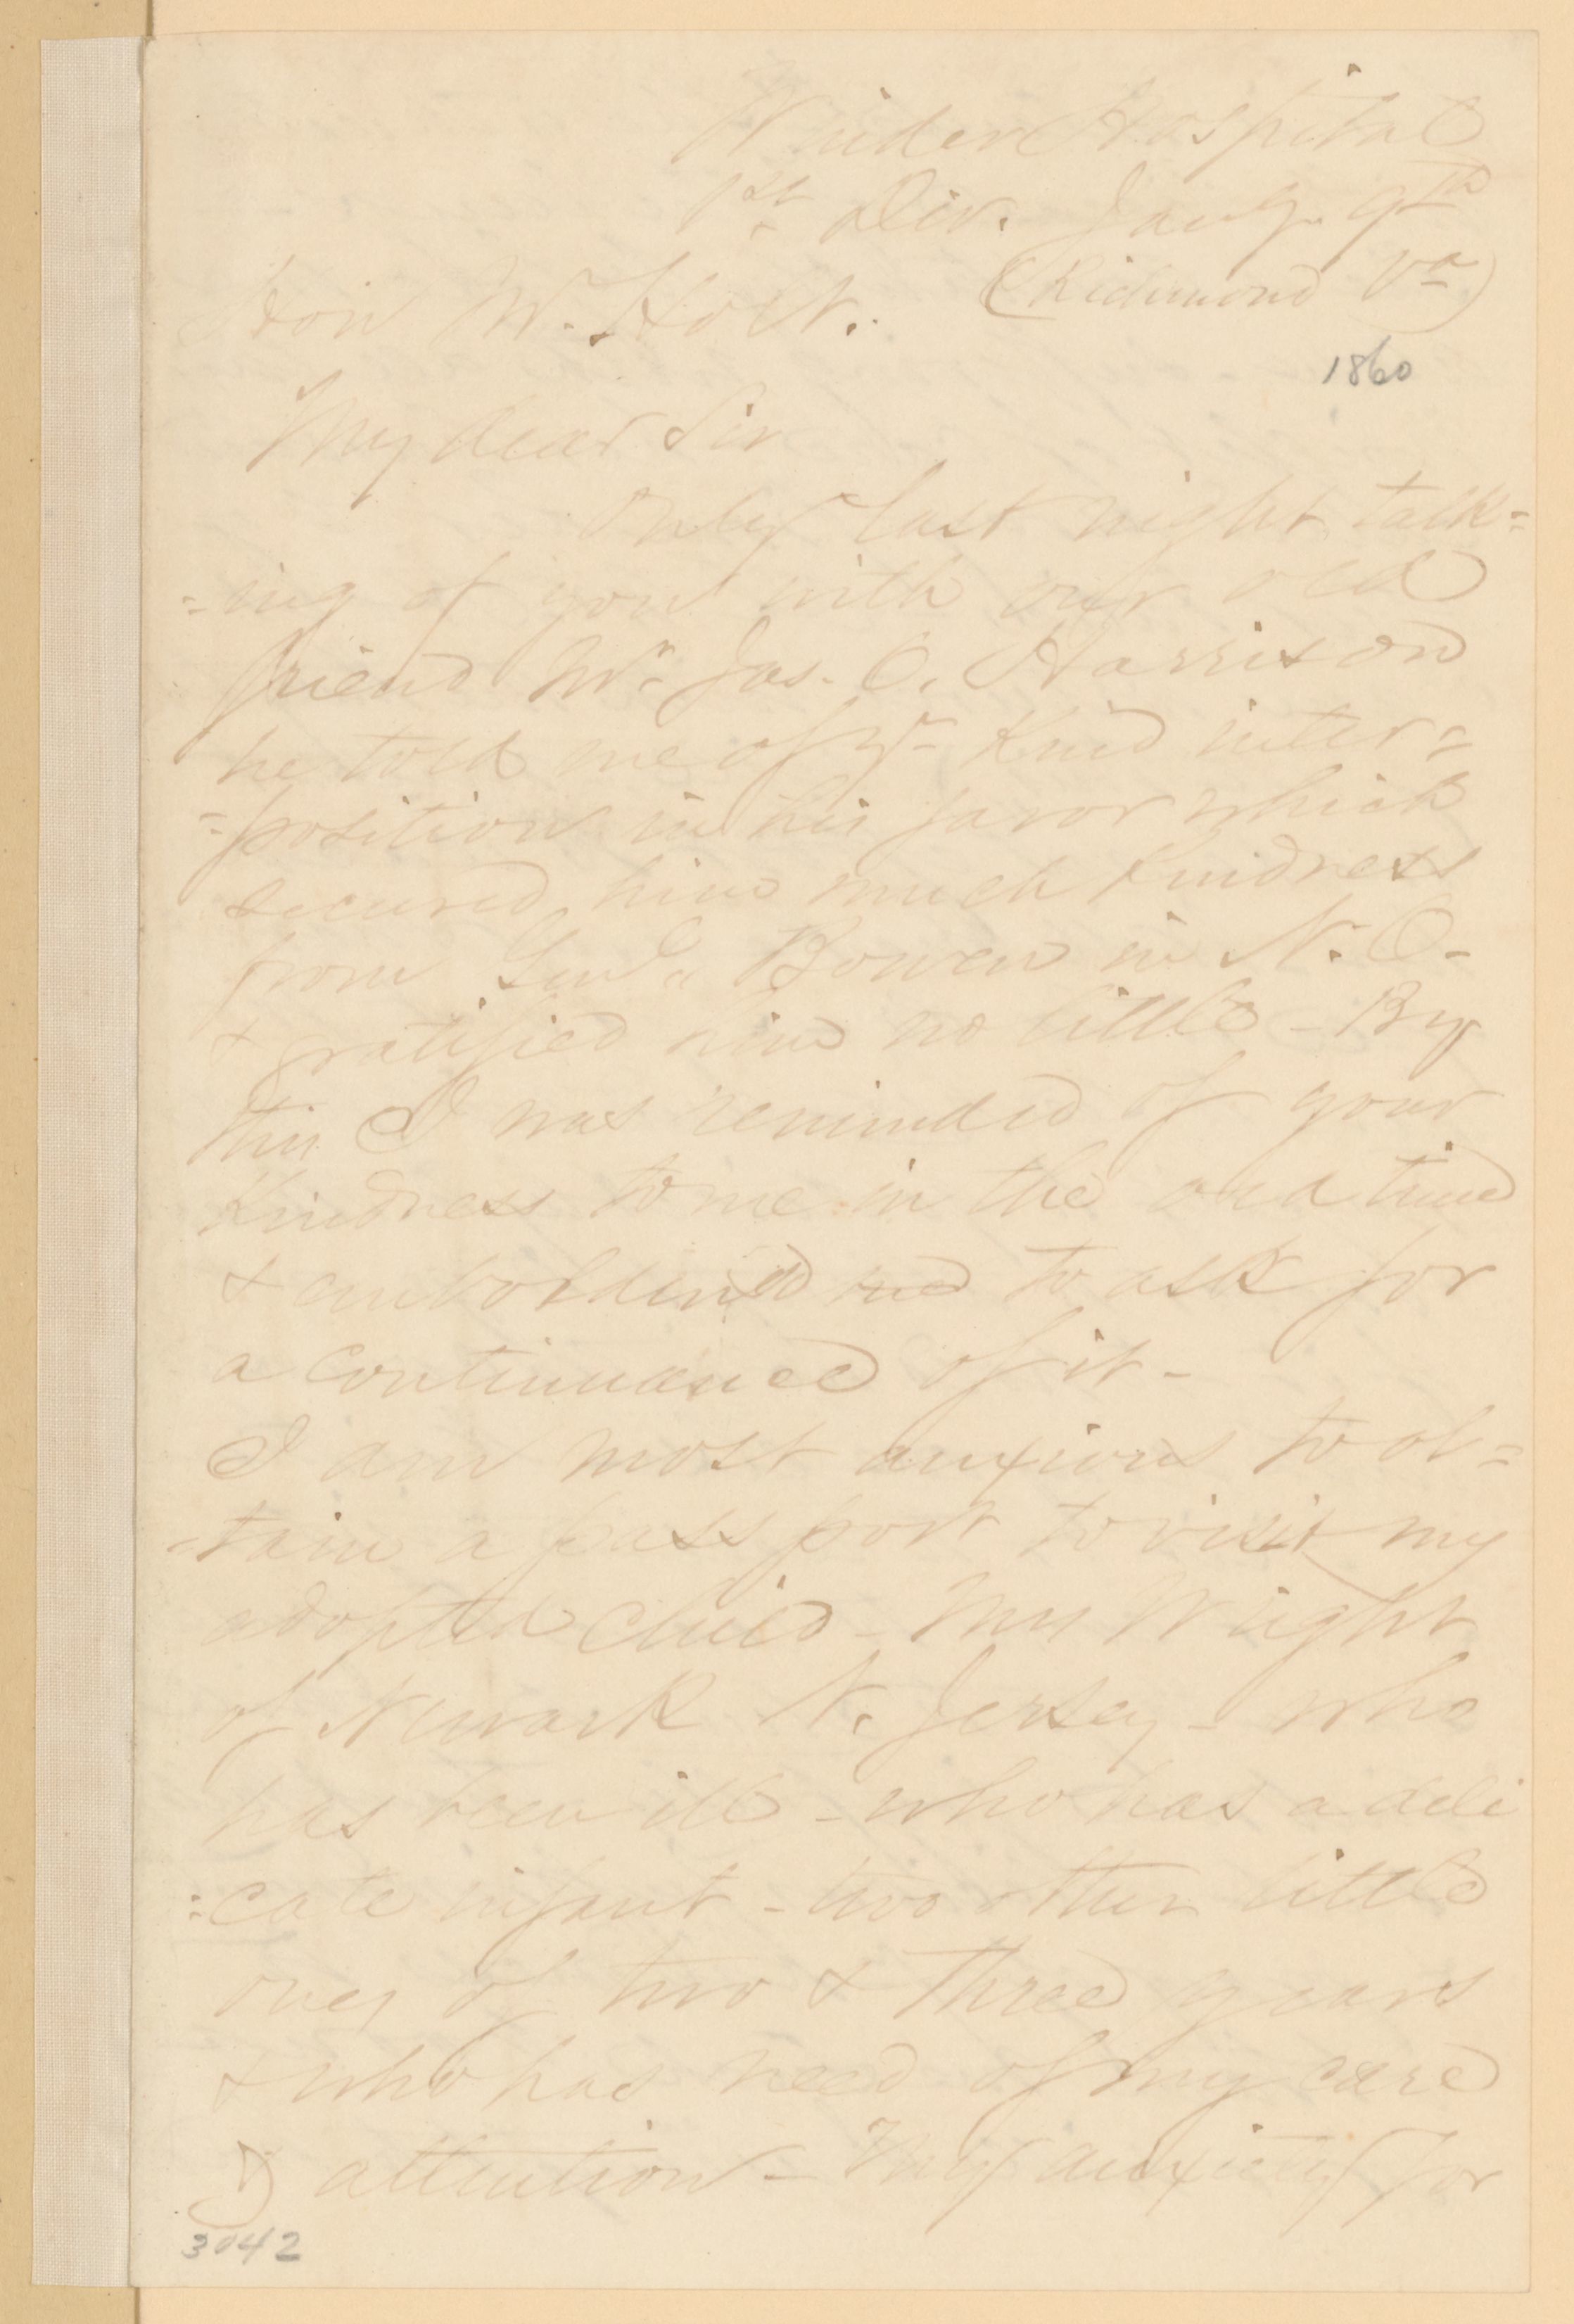 Winder Hospital
1st Div. Jany. 9th
(Richmond Va)
Hon Mr. Holt.
1860
My dear Sir
Only last night talk=
=ing of you with our old
friend Mr. Jas. O. Harrison
he told me of yr kind inter=
=position in his favor which
secured him much kindness
from Genl. Bowen in N. O.
& gratified him no little - By
this I was reminded of your
kindness to me in the old time
& emboldened me to ask for
a continuance of it -
I am most anxious to ob=
=tain a pass port to visit my
adopted child - Mrs Wright
of Newark N. Jersey - who
has been ill - who has a deli
=cate infant - two other little
ones of two & three years
& who has need of my care
& attention - My anxiety for
3042